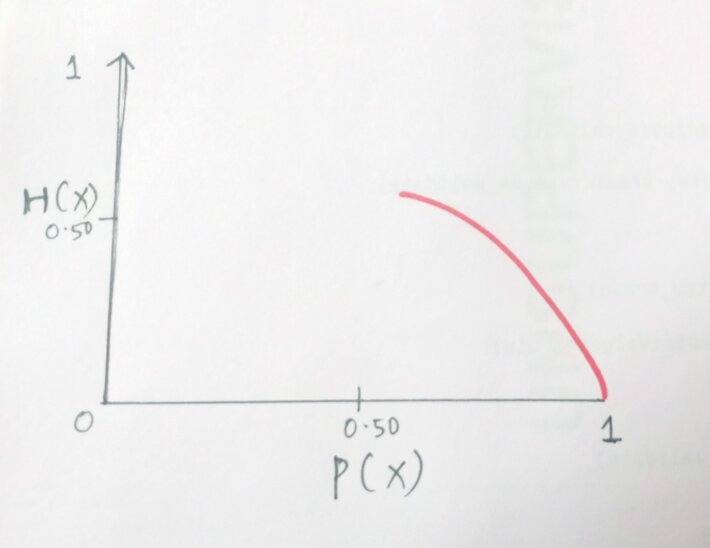 1
H(X)
0.50
0
0.50
1
P(X)